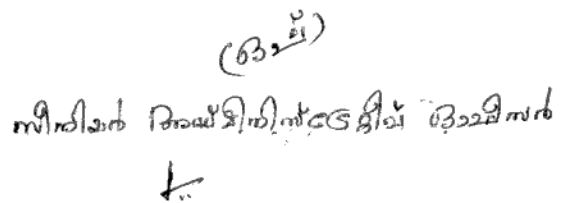 (ഒപ്പ്)
സീനിയർ അഡ്മിനിസ്ട്രേറ്റീവ് ഓഫീസർ